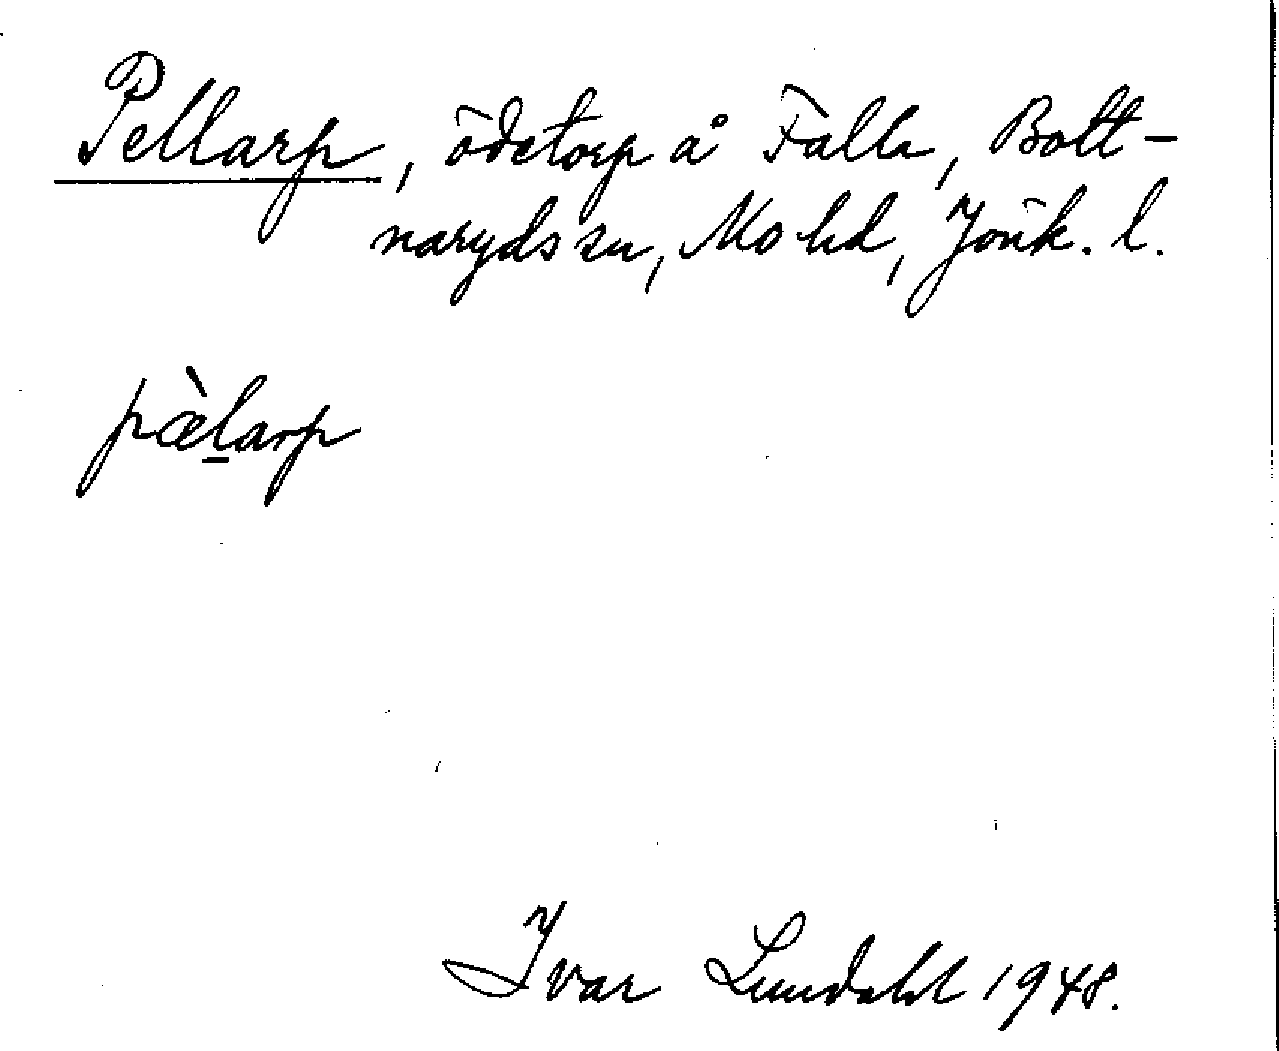 Pellarp, ödetorp å Falla, Bott-
naryds sn, Mo hd, Jönk. l.
pæ̀l̠arp
Ivar Lundahl 1948.